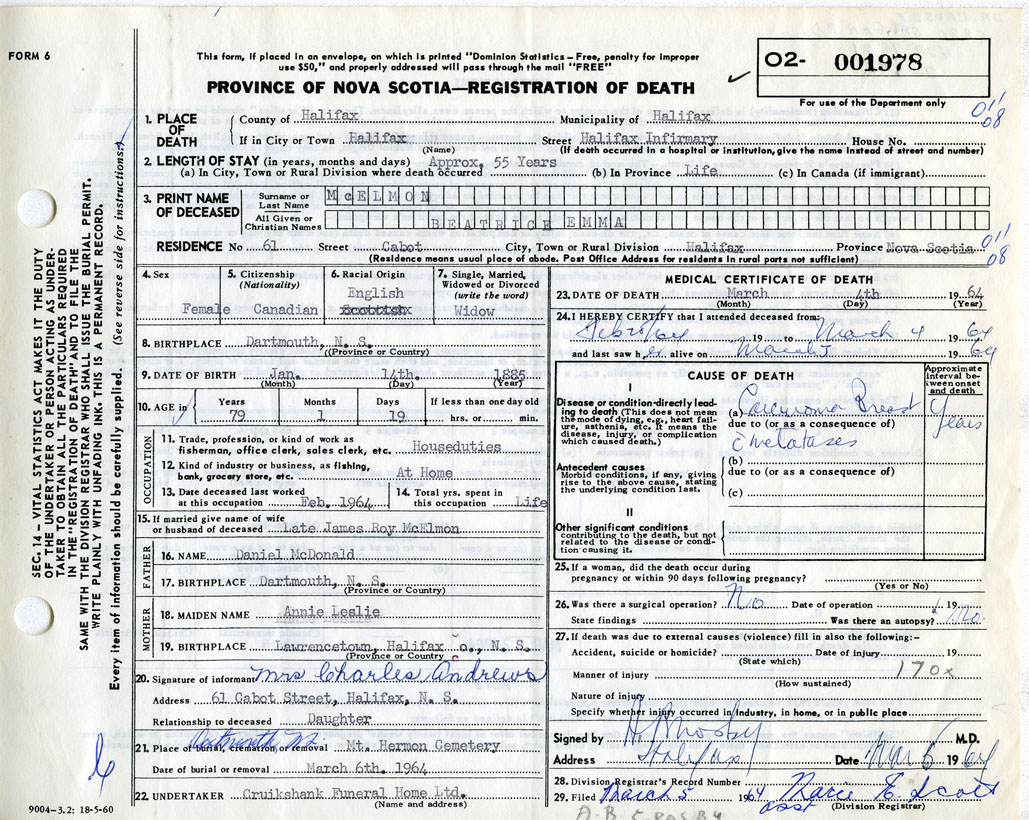 FORM 6
This form, if placed in an envelope, on which is printed "Dominion Statistics – Free, penalty for improper
use $50," and properly addressed will pass through the mail "FREE"
PROVINCE OF NOVA SCOTIA—REGISTRATION OF DEATH
O2- 001978
For use of the Department only
011
08
1. PLACE OF DEATH
County of Halifax Municipality of Halifax
If in City or Town Halifax Street Halifax Infirmary House No.
(Name) (If death occurred in a hospital or institution, give the name instead of street and number)
2. LENGTH OF STAY (in years, months and days) Approx. 55 Years
(a) In City, Town or Rural Division where death occurred (b) In Province Life (c) In Canada (if immigrant)
3. PRINT NAME OF DECEASED
Surname or Last Name McELMON
All Given or Christian Names BEATRICE EMMA
RESIDENCE No 61 Street Cabot City, Town or Rural Division Halifax Province Nova Scotia
(Residence means usual place of abode. Post Office Address for residents in rural parts not sufficient)
011
08
4. Sex
Female
5. Citizenship
(Nationality)
Canadian
6. Racial Origin
English
Scottish
7. Single, Married,
Widowed or Divorced
(write the word)
Widow
8. BIRTHPLACE Dartmouth, N. S.
(Province or Country)
9. DATE OF BIRTH Jan. 14th. 1885
(Month) (Day) (Year)
10. AGE in
Years Months Days If less than one day old
79 1 19 hrs. or min.
OCCUPATION
11. Trade, profession, or kind of work as
fisherman, office clerk, sales clerk, etc. Houseduties
12. Kind of industry or business, as fishing,
bank, grocery store, etc. At Home
13. Date deceased last worked
at this occupation Feb. 1964
14. Total yrs. spent in
this occupation Life
15. If married give name of wife
or husband of deceased Late James Roy McElmon
FATHER
16. NAME Daniel McDonald
17. BIRTHPLACE Dartmouth, N. S.
(Province or Country)
MOTHER
18. MAIDEN NAME Annie Leslie
19. BIRTHPLACE Lawrencetown, Halifax Co., N. S.
(Province or Country
20. Signature of informant Mrs Charles Andrews
Address 61 Cabot Street, Halifax, N. S.
Relationship to deceased Daughter
21. Place of burial, cremation or removal Mt. Hermon Cemetery
Dartmouth N.S.
Date of burial or removal March 6th. 1964
22. UNDERTAKER Cruikshank Funeral Home Ltd.
(Name and address)
MEDICAL CERTIFICATE OF DEATH
23. DATE OF DEATH March 4th 1964
(Month) (Day) (Year)
24. I HEREBY CERTIFY that I attended deceased from:
19 to March 4 1964
and last saw her alive on March 1964
CAUSE OF DEATH
Approximate
interval be-
tween onset
and death
I
Disease or condition directly lead-
ing to death (This does not mean
the mode of dying, e.g., heart fail-
ure, asthenia, etc. It means the
disease, injury, or complication
which caused death.)
(a) Carcinoma Breast
Years
due to (or as a consequence of)
c̄ metatases
Antecedent causes
Morbid conditions, if any, giving
rise to the above cause, stating
the underlying condition last.
(b)
due to (or as a consequence of)
(c)
II
Other significant conditions
contributing to the death, but not
related to the disease or condi-
tion causing it.
25. If a woman, did the death occur during
pregnancy or within 90 days following pregnancy?
(Yes or No)
26. Was there a surgical operation? No Date of operation 19
State findings Was there an autopsy? No.
27. If death was due to external causes (violence) fill in also the following:–
Accident, suicide or homicide? Date of injury 19
(State which)
Manner of injury 170x
(How sustained)
Nature of injury
Specify whether injury occurred in industry, in home, or in public place
Signed by M.D.
Address Halifax Date Mar 5 1964
28. Division Registrar's Record Number
29. Filed March 5 1964 Marie E. Scott
asst (Division Registrar)
A. B. CROSBY
SEC. 14 – VITAL STATISTICS ACT MAKES IT THE DUTY
OF THE UNDERTAKER OR PERSON ACTING AS UNDER-
TAKER TO OBTAIN ALL THE PARTICULARS REQUIRED
IN THE "REGISTRATION OF DEATH" AND TO FILE THE
SAME WITH THE DIVISION REGISTRAR WHO SHALL ISSUE THE BURIAL PERMIT.
WRITE PLAINLY WITH UNFADING INK. THIS IS A PERMANENT RECORD.
Every item of information should be carefully supplied. (See reverse side for instructions.)
9004–3.2: 18-5-60